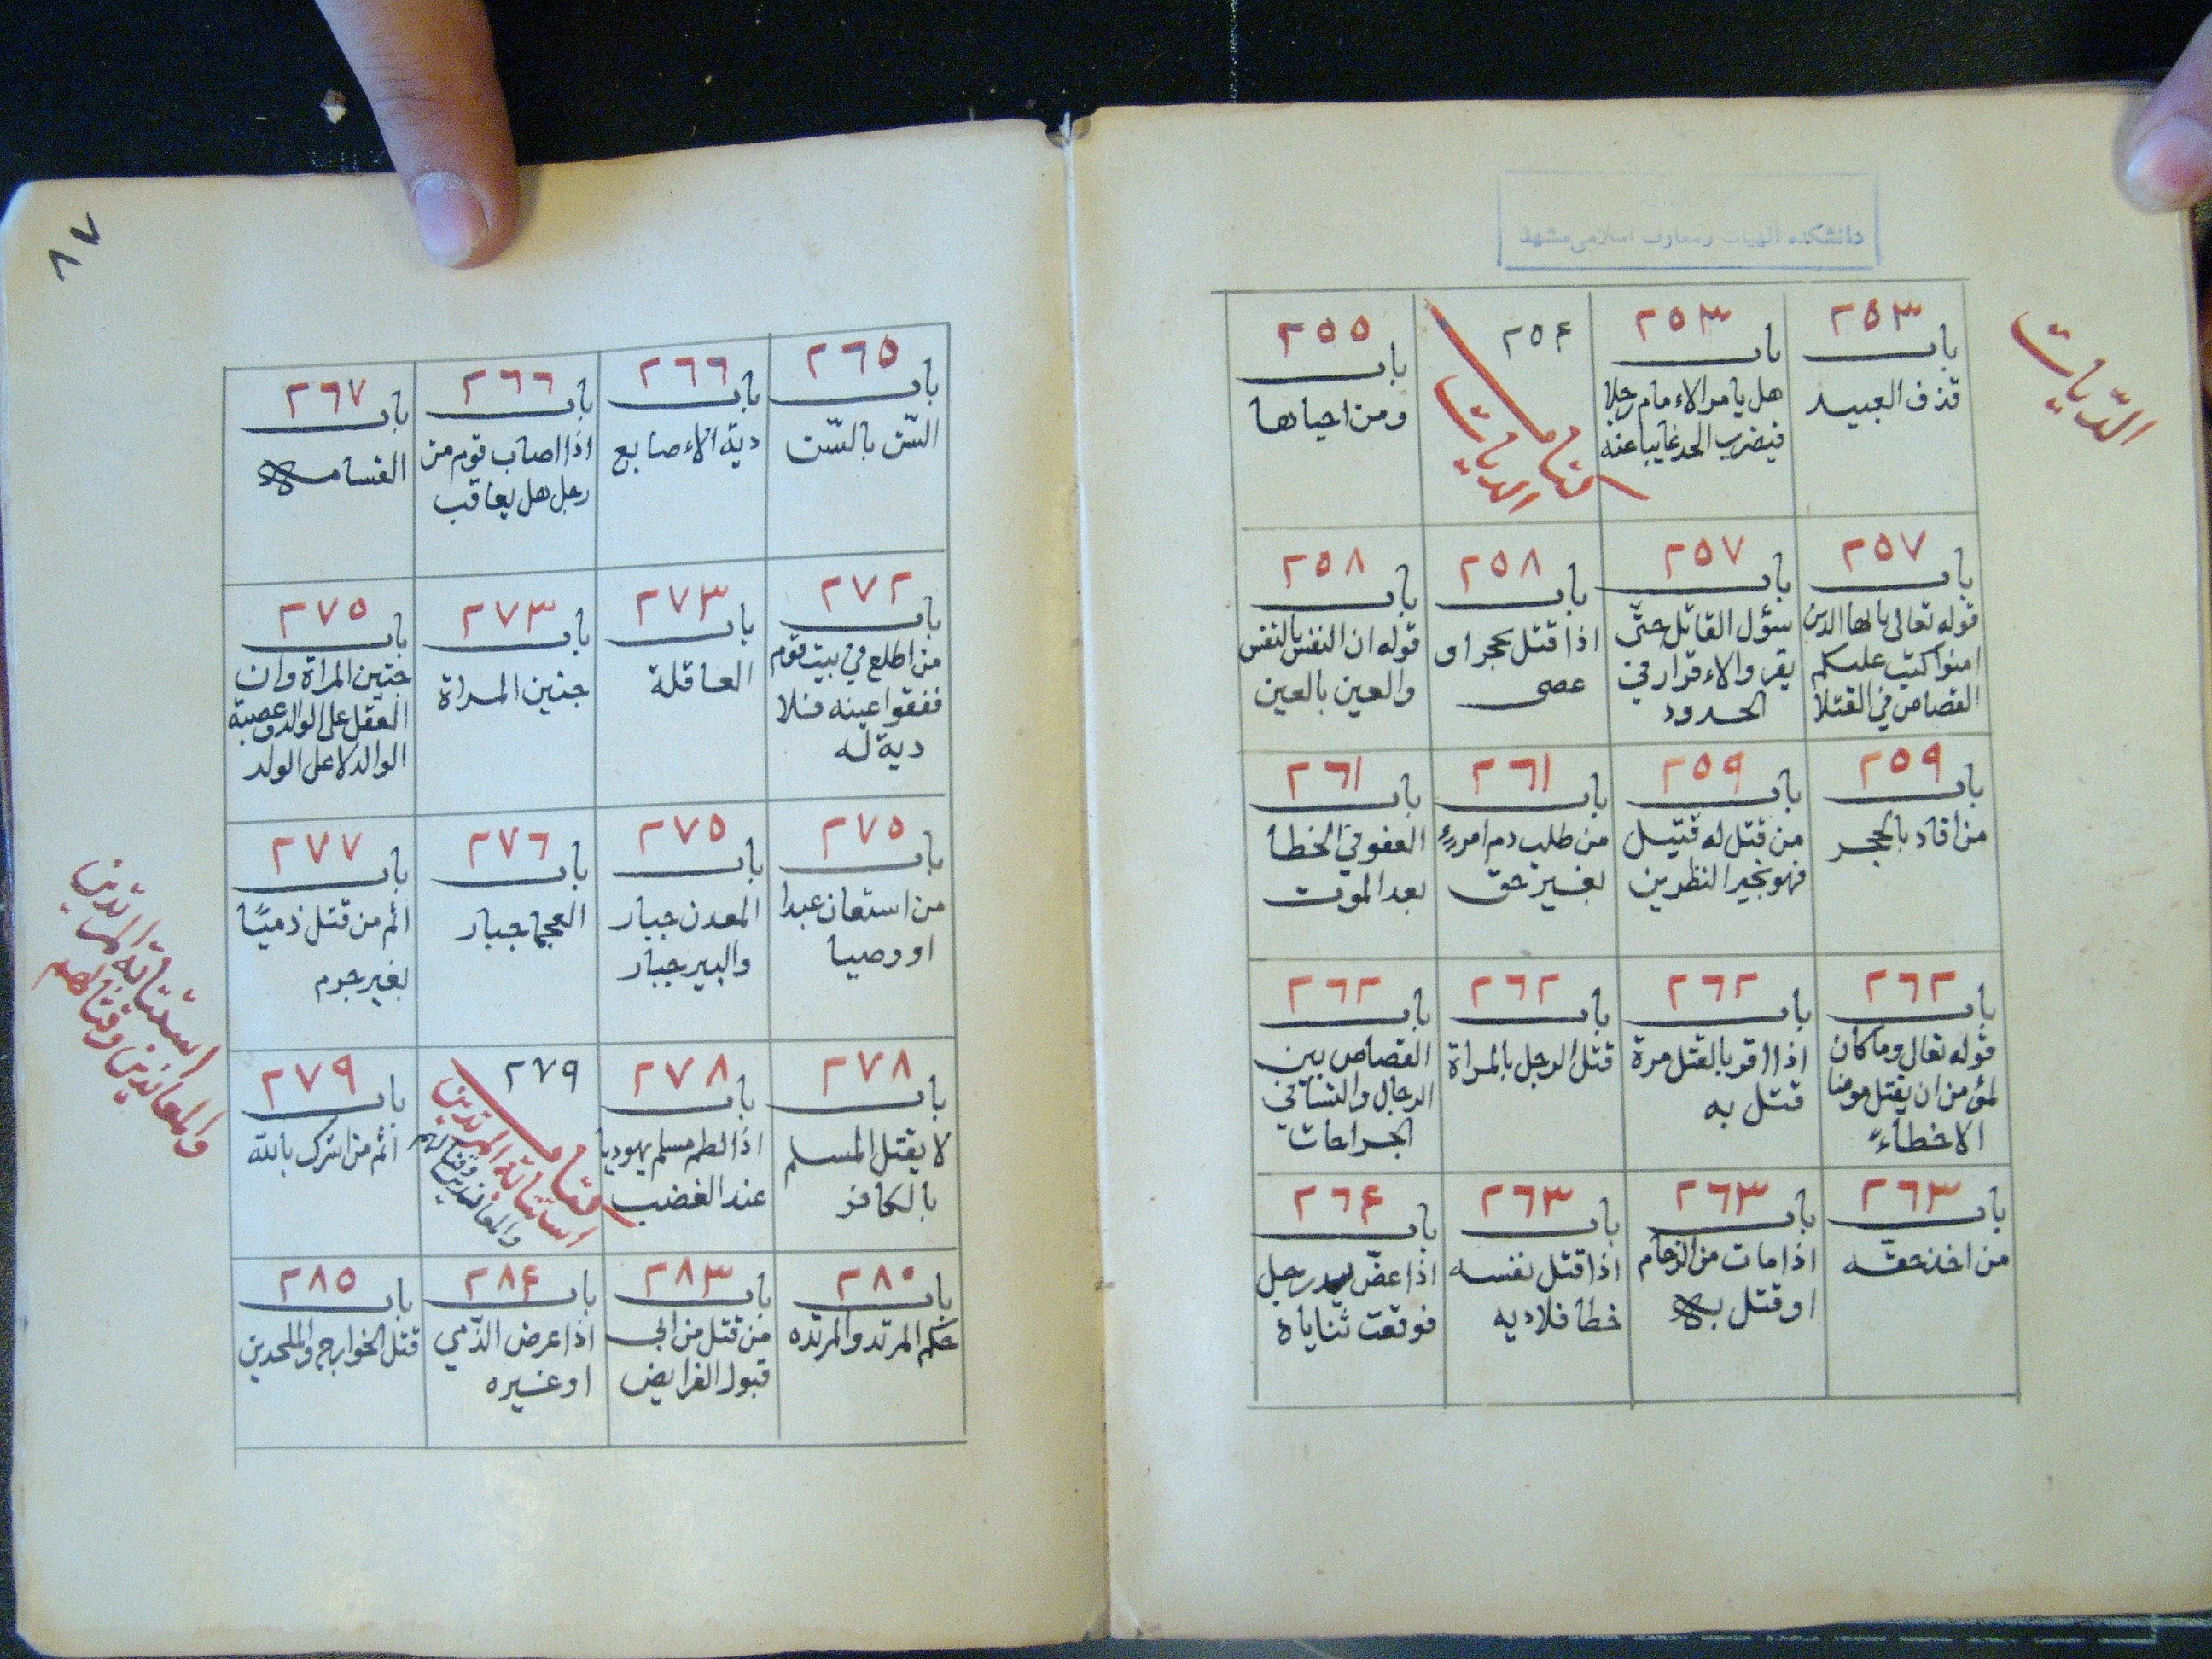 دانشكده الهيات ومعارف اسلامى مشهد
الدّيات
٢٥٣
باب
قذف العبيد
٢٥٣
باب
هل يامر الاءمام رجلا
فيضرب الحد غايبا عنه
٢٥۴
الديات
٢٥٥
باب
ومن احياها
٢٥٧
باب
قوله تعالى يا ايها الذين
امنوا كتب عليكم
القصاص في القتلا
٢٥٧
باب
سؤل القاتل حتّى
يقر والاءقرار في
الحدود
٢٥٨
باب
اذا قتل بحجر او
عصى
٢٥٨
باب
قوله ان النفس بالنفس
والعين بالعين
٢٥٩
باب
من اقاد بالحجر
٢٥٩
باب
من قتل له قتيل
فهو بخير النظرين
٢٦١
باب
من طلب دم امرءٍ
بغير حق
٢٦١
باب
العفو في الخطا
بعد الموت
٢٦٢
باب
قوله تعالى وما كان
لمؤمن ان يقتل مومنا
الاخطاءً
٢٦٢
باب
اذا اقر بالقتل مرة
قتل به
٢٦٢
باب
قتل الرجل بالمراة
٢٦٢
باب
القصاص بين
الرجال والنسا في
الجراحات
٢٦٣
باب
من اخذ حقّه
٢٦٣
باب
اذا مات من الزحام
او قتل به
٢٦٣
باب
اذا قتل نفسه
خطا فلا ديه
٢٦۴
باب
اذا عضّ يد رجل
فوقعت ثناياه
٨٧
٢٦٥
باب
السّن بالسّن
٢٦٦
باب
دية الاءصابع
٢٦٦
باب
اذا اصاب قوم من
رجل هل يعاقب
٢٦٧
باب
القسامه
٢٧٢
باب
من اطلع في بيت قوم
ففقوا عينه فلا
دية له
٢٧٣
باب
العاقلة
٢٧٣
باب
جنين المراة
٢٧٥
باب
جنين المراة وان
العقل على الوالد وعصبة
الوالد لا على الولد
٢٧٥
باب
من استعان عبدا
او وصبيا
٢٧٥
باب
المعدن جبار
والبير جبار
٢٧٦
باب
العجما جبار
٢٧٧
باب
اثم من قتل ذميًا
بغير جرم
استتابه المرتدين
والمعاندين وقتالهم
٢٧٨
باب
لا يقتل المسلم
بالكافر
٢٧٨
باب
اذا لطم مسلم يهوديا
عند الغضب
٢٧٩
استتابة المرتدين
والمعاندين وقتالهم
٢٧٩
باب
اثم من اشرك بالله
٢٨٠
باب
حكم المرتد والمرتده
٢٨٣
باب
من قتل من ابى
قبول الفرايض
٢٨۴
باب
اذا عرض الذّمي
او غيره
٢٨٥
باب
قتل الخوارج والملحدين